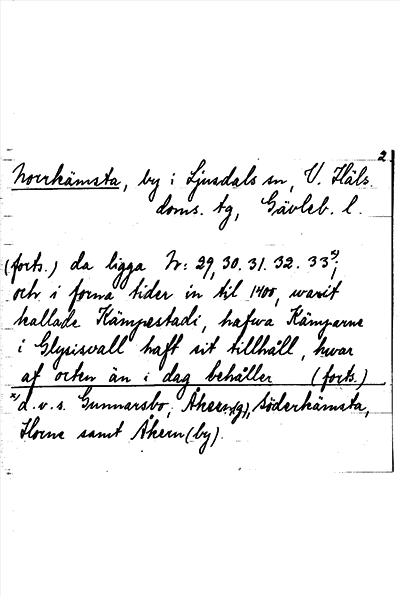 2.
Norrkämsta, by i Ljusdals sn, V. Häls.
doms. tg, Gävleb. l.
(forts.) da ligga Nr: 29, 30. 31. 32. 33ˣ⁾;
och i forna tider in til 1400, warit
kallade Kämpestadi, hafwa Kämparne
i Glysisvall haft sit tillhåll, hwar
af orten än i dag behåller (forts.)
ˣ⁾ d.v.s. Gunnarsbo, Åkern (g), Söderkämsta,
Horne samt Åkern (by).